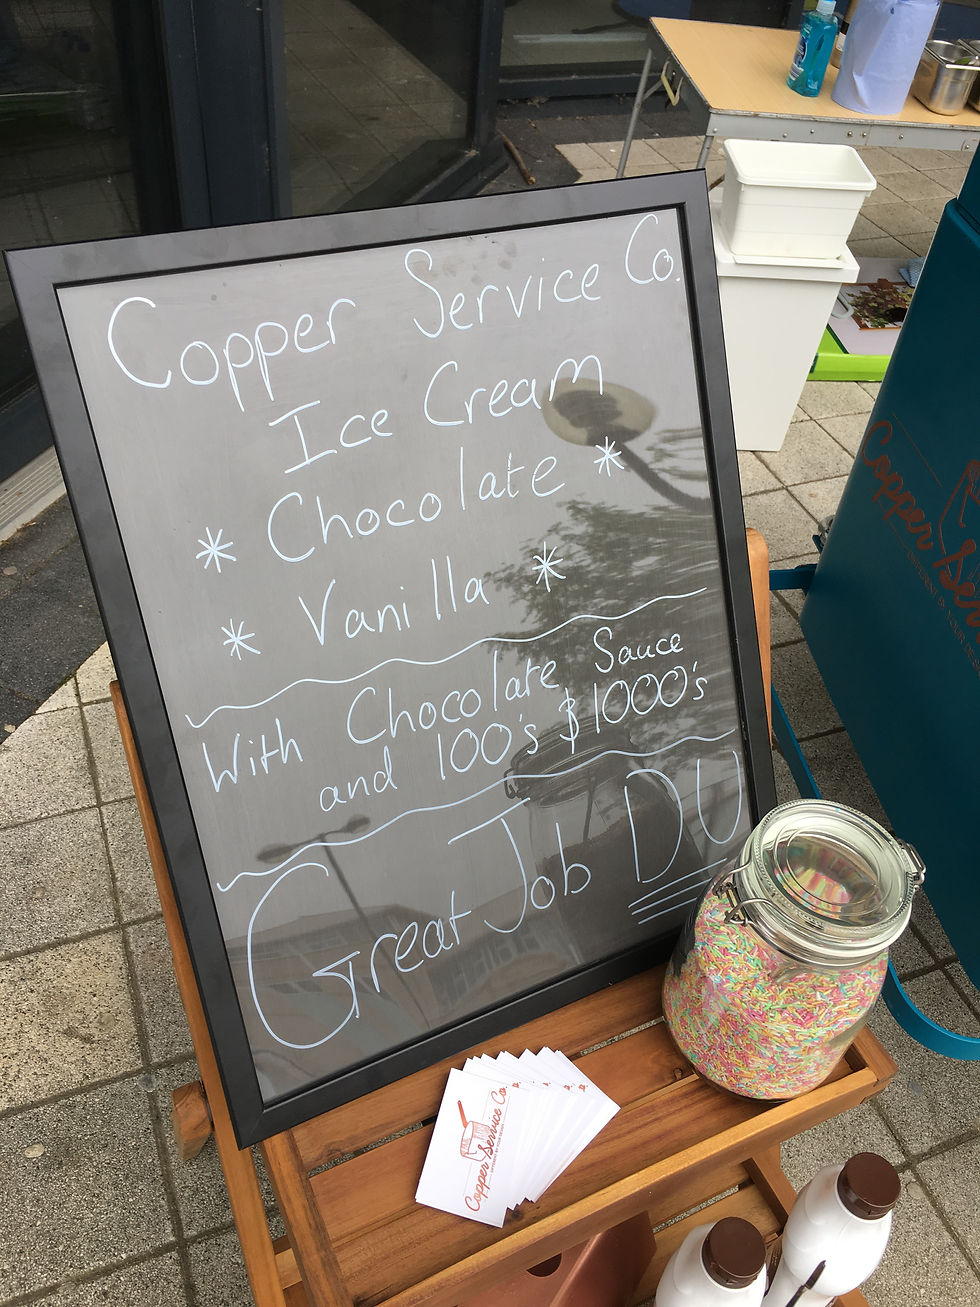 Copper Service Co.
Ice Cream
* Chocolate *
* Vanilla *
With Chocolate Sauce
and 100's & 1000's
Great Job DU
Copper Service Co.
Copper Ser